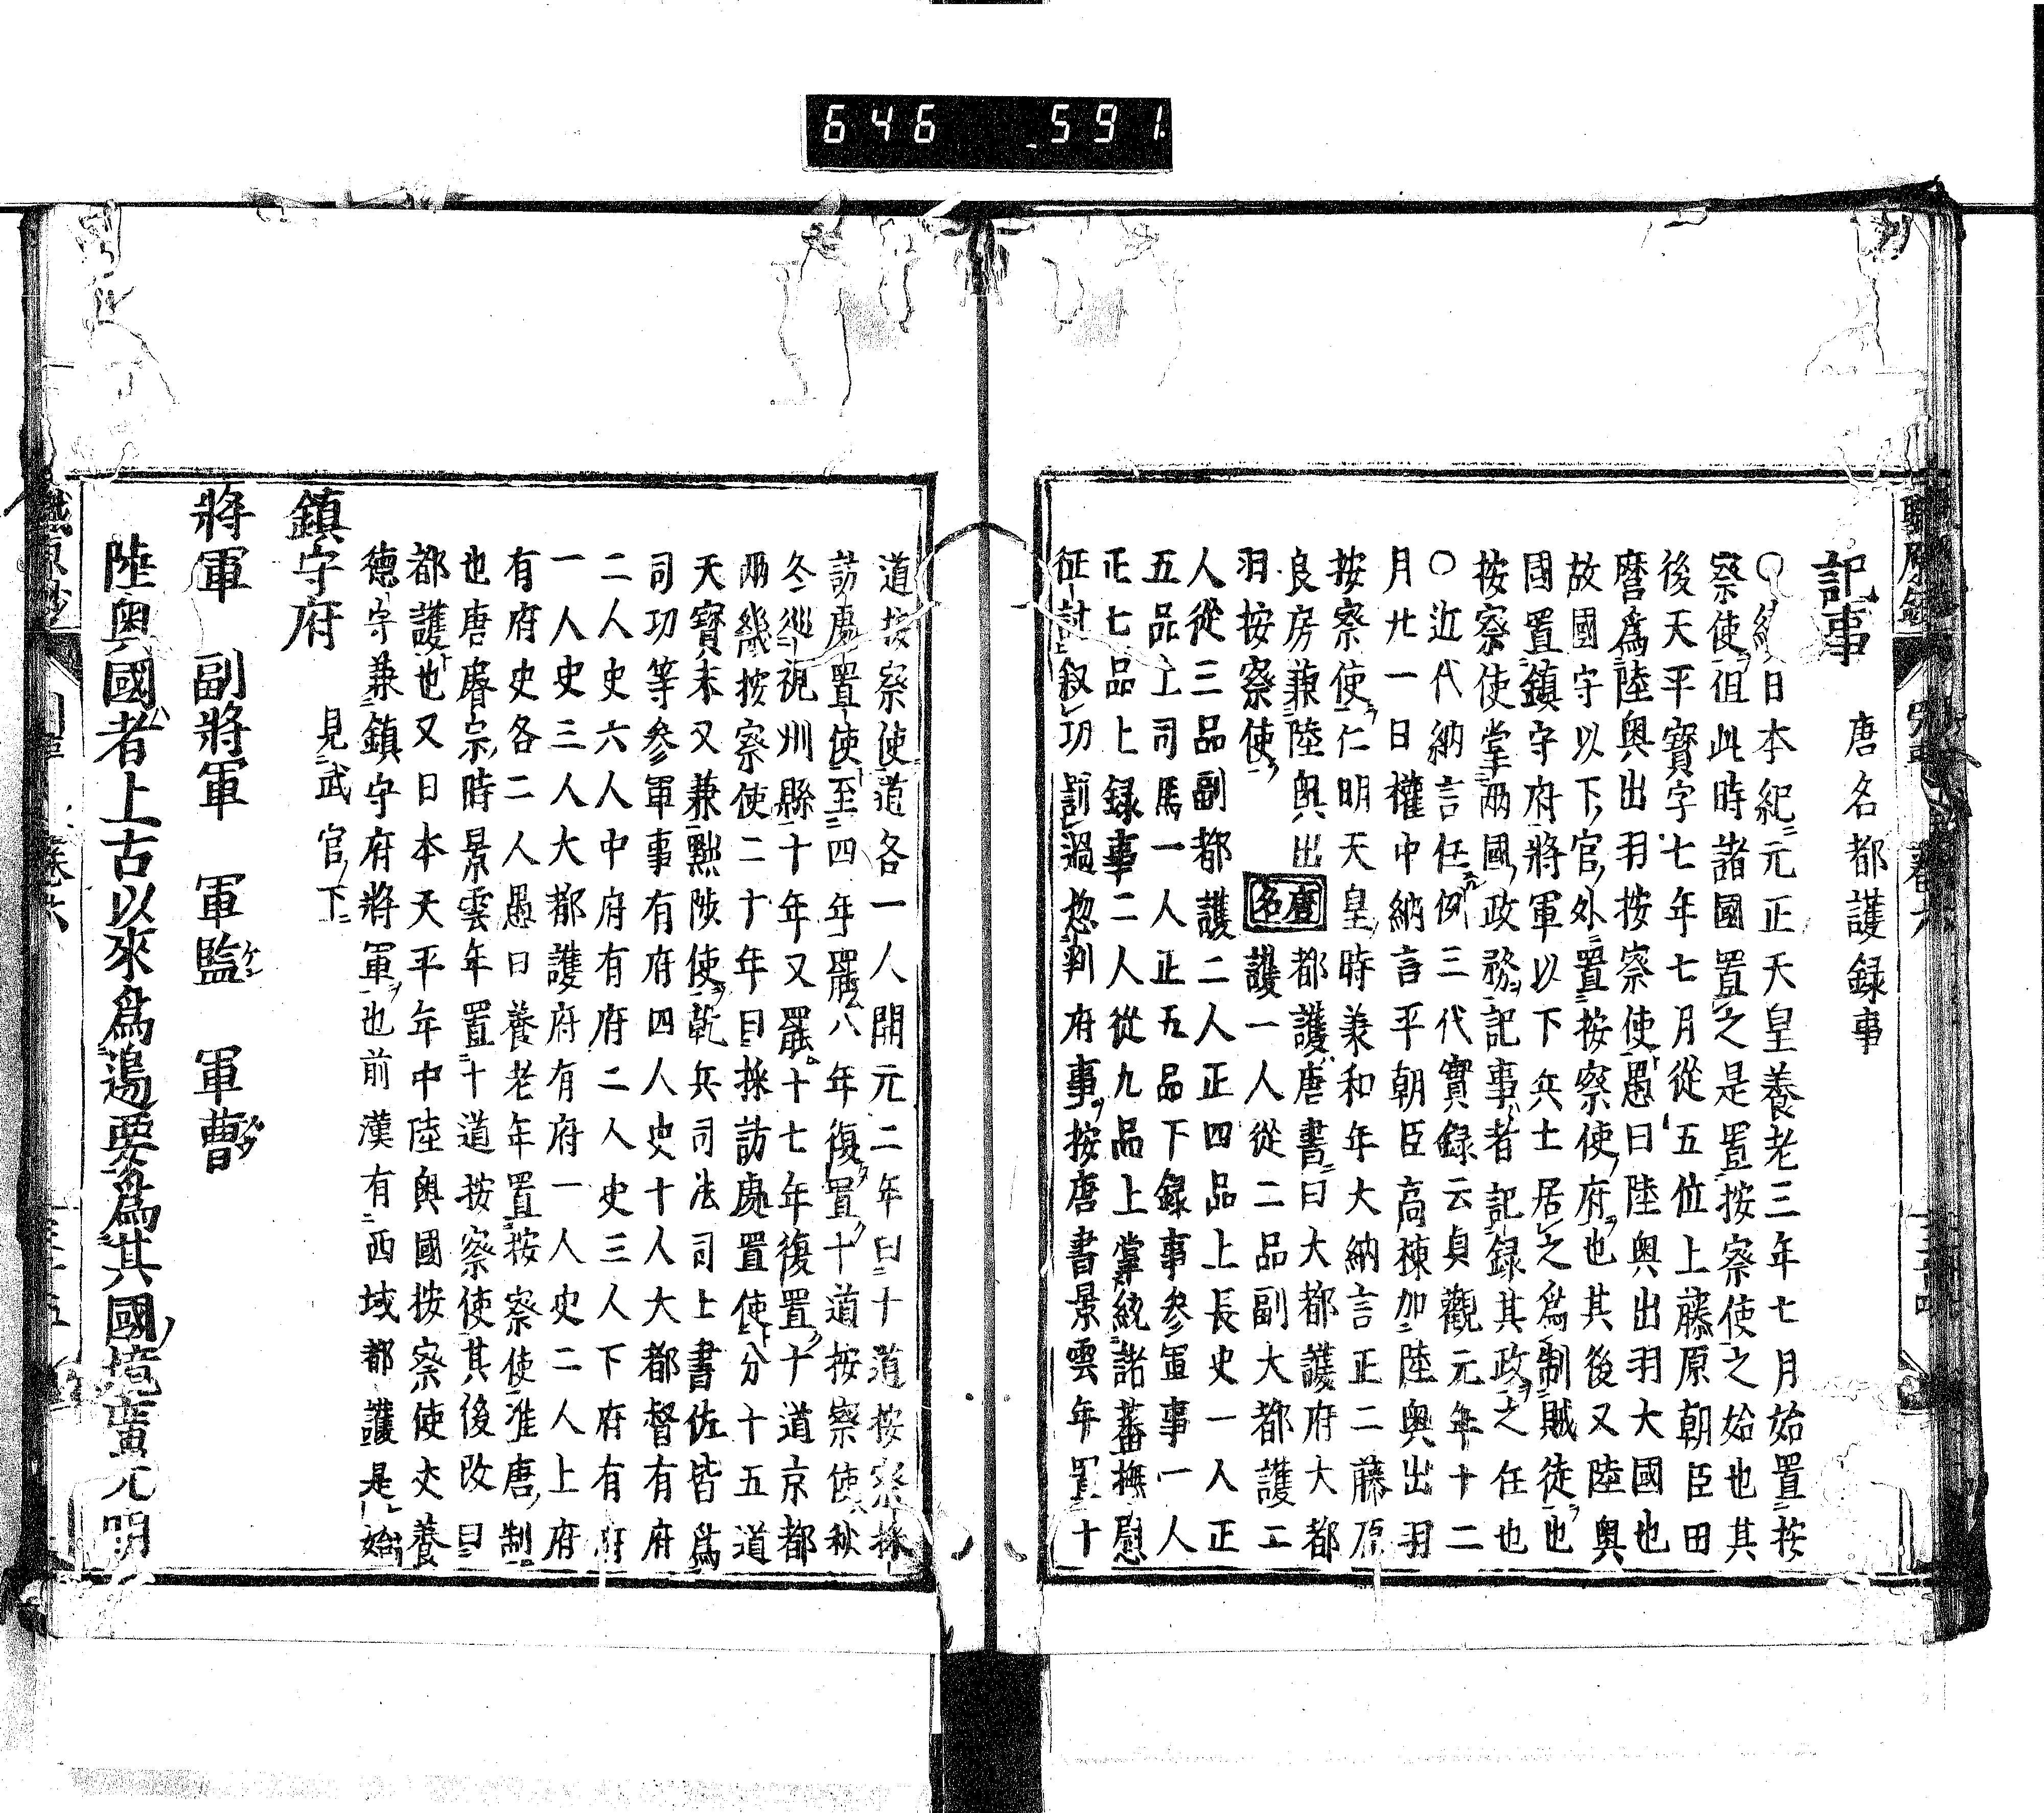 646 591
記事 唐名都護録事
○續日本紀元正天皇養老三年七月始置按
察使徂此時諸國置之是置按察使之始也其
後天平寳字七年七月從五位上藤原朝臣田
麿爲陸奥出羽按察使愚曰陸奥出羽大國也
故國守以下官外置按察使府也其後又陸奥
國置鎮守府將軍以下兵士居之爲制賊徒也
按察使掌兩國政務記事者記録其政之任也
○近代納言任例三代實録云貞觀元年十二
月廿一日權中納言平朝臣高棟加陸奥出羽
按察使仁明天皇時兼和年大納言正二藤原
良房兼陸奥出
羽按察使
唐名
都護唐書曰大都護府大都
護一人從二品副大都護二
人從三品副都護二人正四品上長史一人正
五品上司馬一人正五品下録事參軍事一人
正七品上録事二人從九品上掌統諸蕃撫慰
征討叙功罰過惣判府事按唐書景雲年置十
道按察使道各一人開元二年曰十道按察採
訪處置使至四年罷八年復置十道按察使秋
冬巡視州縣十年又罷十七年復置十道京都
兩畿按察使二十年曰採訪處置使分十五道
天寳末又兼黜陟使乾兵司法司上書佐皆爲
司功等參軍事有府四人史十人大都督有府
二人史六人中府有府二人史三人下府有府
一人史三人大都護府有府一人史二人上府
有府史各二人愚曰養老年置按察使准唐制
也唐睿宗時景雲年置十道按察使其後改曰
都護也又日本天平年中陸奥國按察使大養
德守兼鎮守府將軍也前漢有西域都護是始
鎮守府 見武官下
將軍 副將軍 軍監 軍曹
陸奥國者上古以來爲邊要爲其國境廣元明